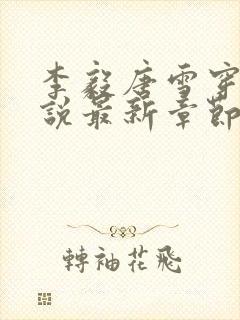 李毅唐雪穿
說最新章節
轉袖花飛